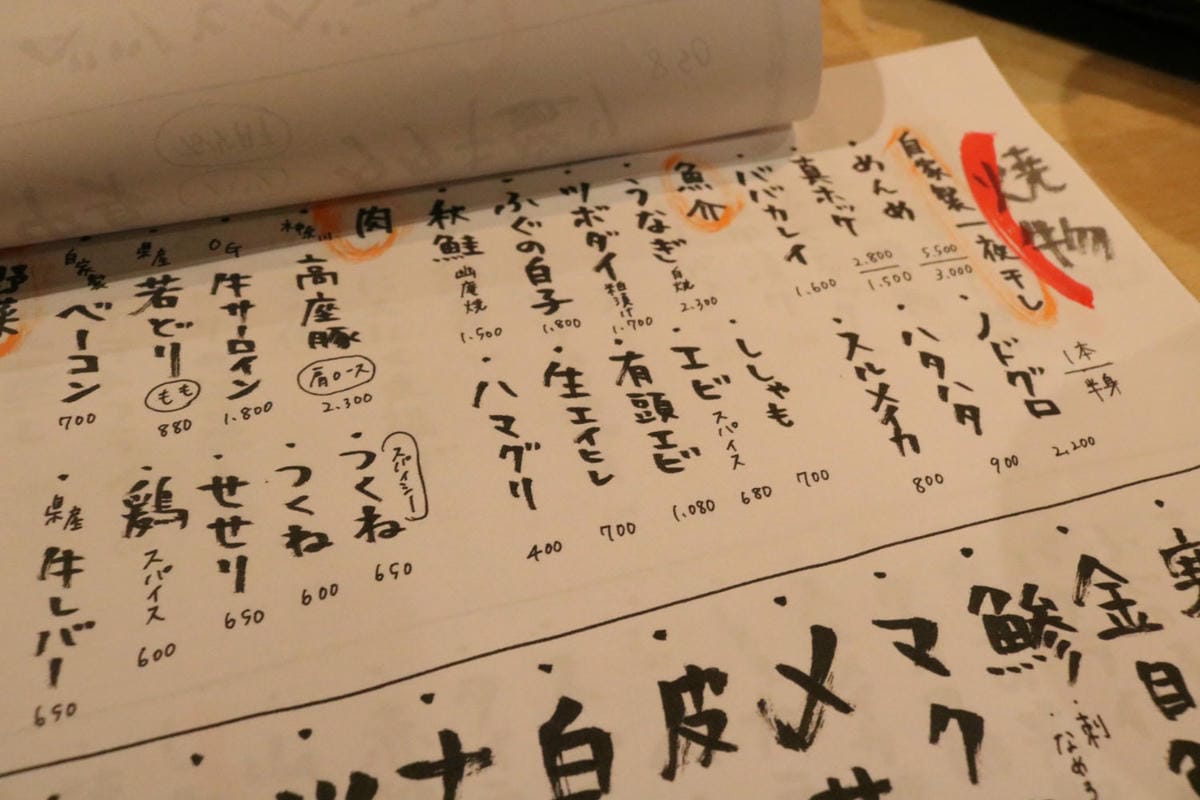 焼物
1本
半身
自家製一夜干し
・めんめ
5.500
3.000
2.800
1.500
・真ホッケ
1.600
・ババカレイ
・ノドグロ
2,200
・ハタハタ
900
・スルメイカ
800
魚介
・うなぎ 白焼
2.300
・ツボダイ 粕漬け
1.700
・ふぐの白子
1.800
・秋鮭 幽庵焼
1.500
・ししゃも
700
・エビ スパイス
680
・有頭エビ
1,080
・生エイヒレ
700
・ハマグリ
400
肉
・神奈川 高座豚 肩ロース
2.300
・OG 牛サーロイン
1.800
・県産 若どり もも
880
・自家製 ベーコン
700
・つくね スパイシー
650
・つくね
600
・せせり
650
・鶏 スパイス
600
・県産 牛レバー
650
野菜
・金目
・鯵 刺 なめろ
・マグ
・メ
・皮
・白
・ナ